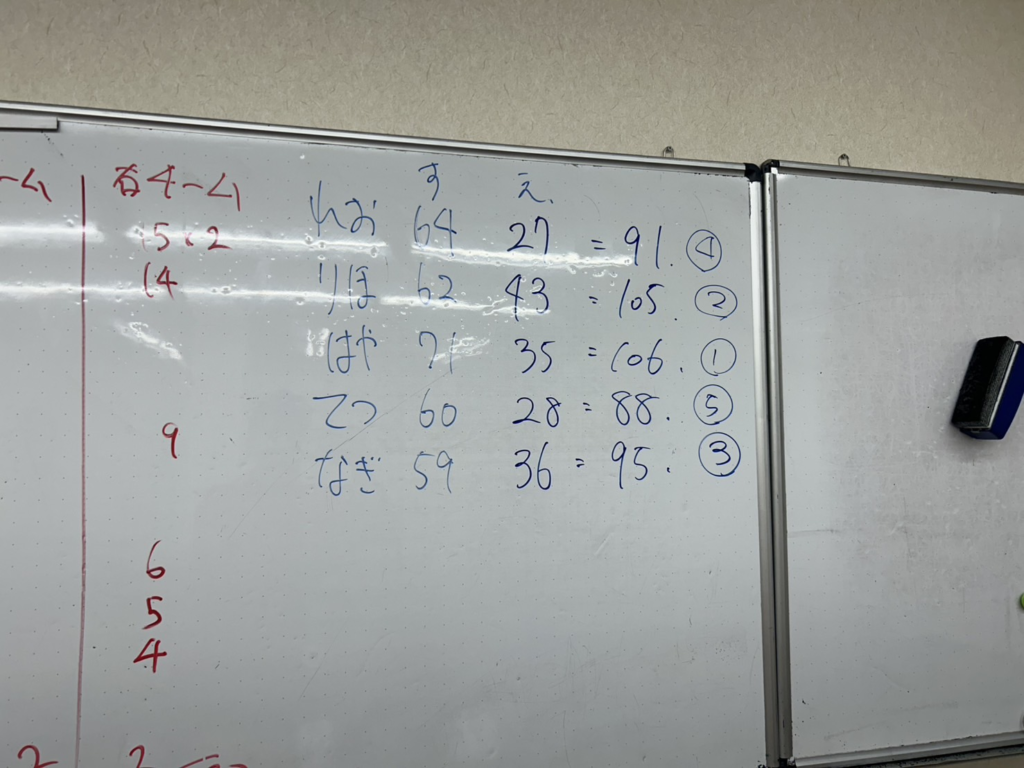 ーム
各チーム
15.2
14
9
6
5
4
す え.
れお 64 27 = 91. ④
りほ 62 43 = 105. ②
はや 71 35 = 106. ①
てつ 60 28 = 88. ⑤
なぎ 59 36 = 95. ③